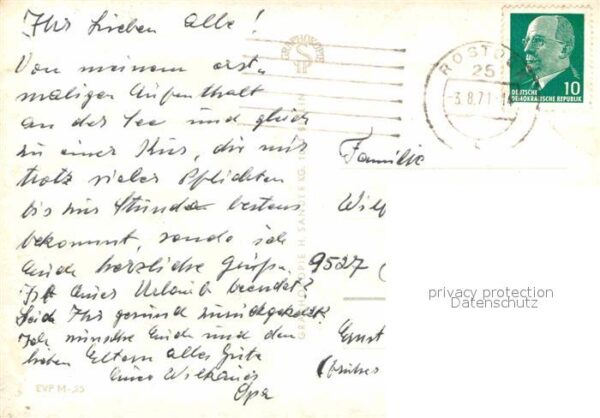 Ihr Lieben alle!
Von meinem erst-
maligen Aufenthalt
an der See und gleich
zu einer Kur, die mir
trotz vieler Pflichten
bis zur Stunde bestens
bekommt, sende ich
Euch herzliche Grüße.
Ist Euer Urlaub beendet?
Seid Ihr gesund zurückgekehrt?
Ich wünsche Euch und den
lieben Eltern alles Gute
Eure
Opa
EVP M -,25
GRAPHOKOPIE
GRAPHOKOPIE H. SANDER KG,
ROSTO
25
-3.8.71
10
DEUTSCHE
DEMOKRATISCHE REPUBLIK
Familie
Wilf
9527
Ernst
(früher
privacy protection
Datenschutz